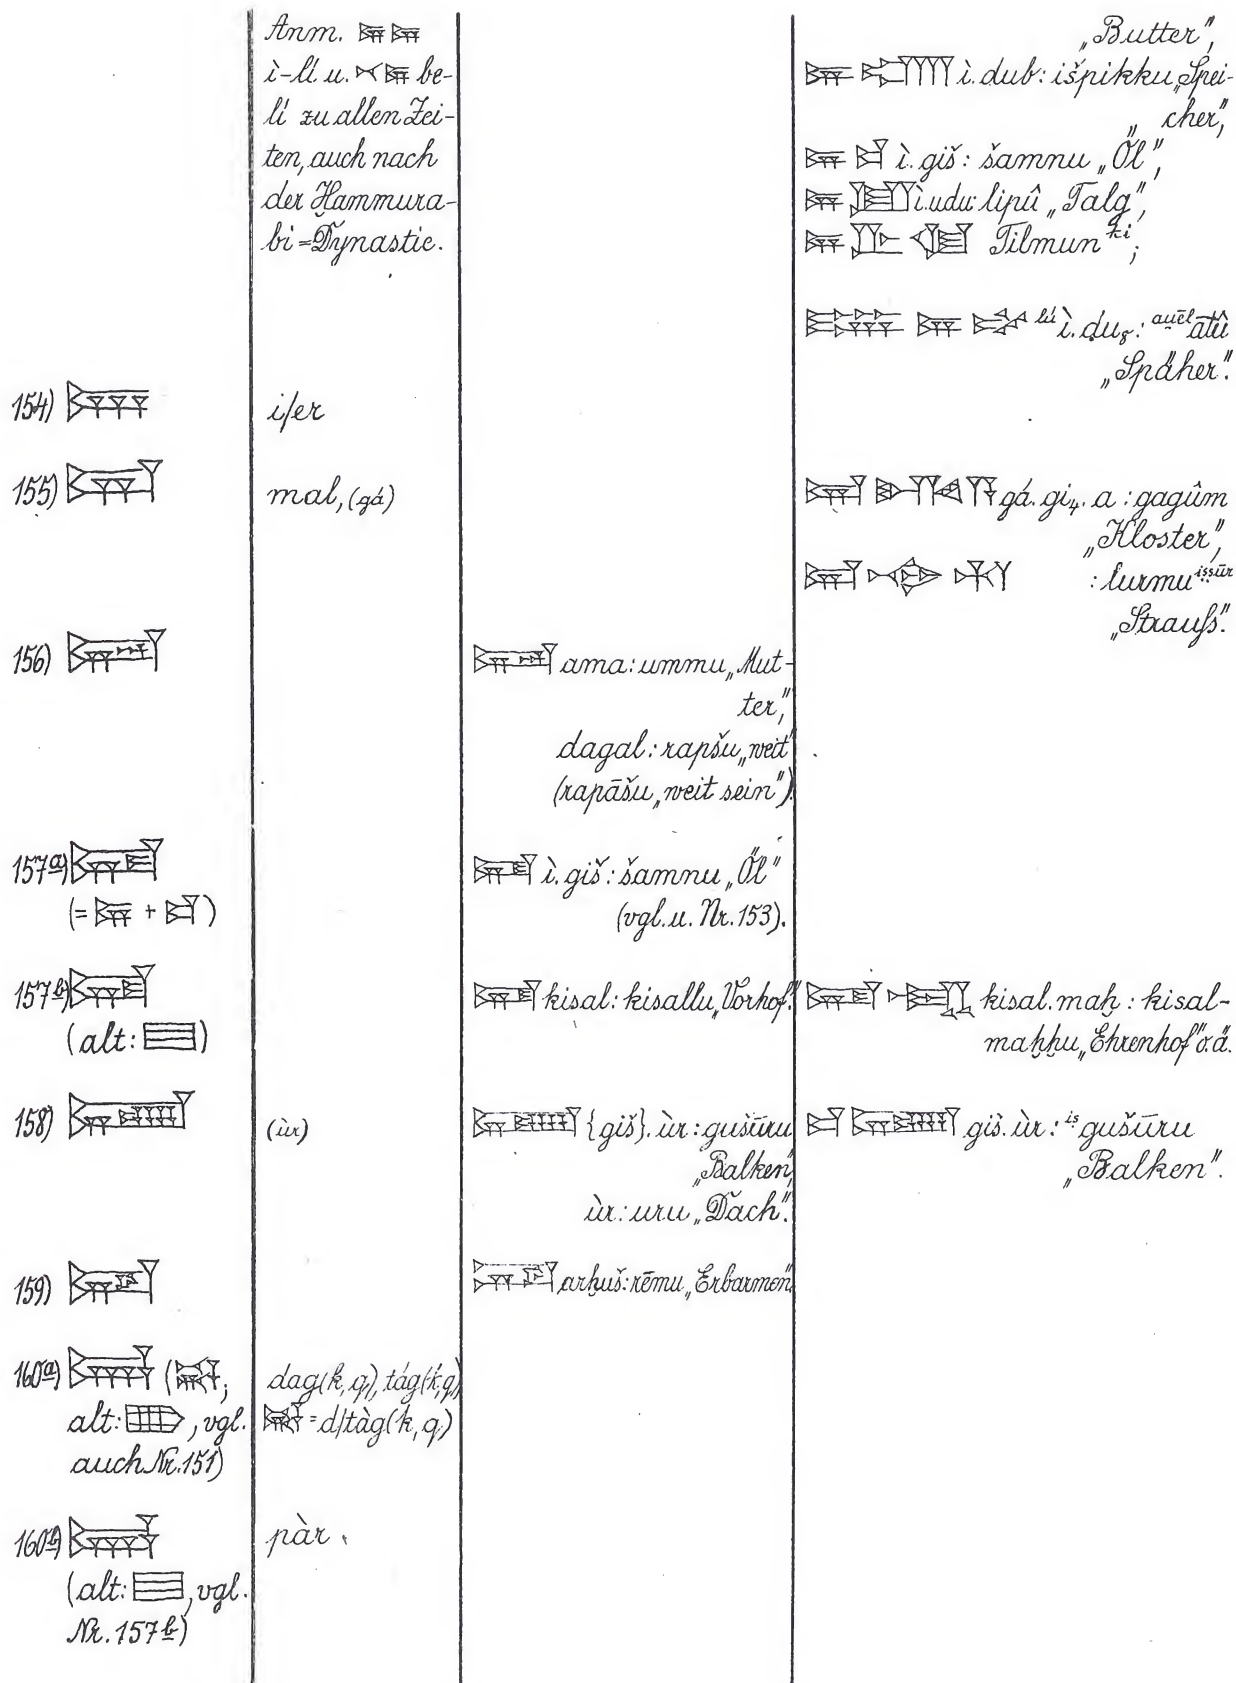 Anm. 𒉌 𒉌
ì-lí u. 𒁁 𒉌 be-
lí zu allen Zei-
ten, auch nach
der Ḫammura-
bi=Dynastie.
„Butter",
𒉌 𒁾 ì.dub: išpikku „Spei-
cher",
𒉌 𒄑 ì.giš: šammu „Öl",
𒉌 𒇻 ì.udu: lipû „Talg",
𒉌 𒌇 𒆠 Tilmun ki;
𒇽 𒉌 𒂃 lú ì.du₈: au̯ēl atû
„Späher".
154) i/er
155) 𒂷 mal, (gá)
𒂷 𒄄 𒀀 gá.gi₄.a : gagûm
„Kloster",
𒂷 𒄷 : lurmu iṣṣūr
„Strauß".
156) 𒂼
𒂼 ama: ummu „Mut-
ter",
dagal: rapšu „weit"
(rapāšu „weit sein").
157a)
(= 𒉌 + 𒄑)
ì.giš: šamnu „Öl"
(vgl. u. Nr. 153).
157b) 𒆦
(alt: )
𒆦 kisal: kisallu „Vorhof".
𒆦 𒈤 kisal.maḫ : kisal-
maḫḫu „Ehrenhof" o.ä.
158) 𒃡 (ùr)
𒃡 {giš}.ùr: gušūru
„Balken",
ùr: uru „Dach".
𒄑 𒃡 giš.ùr: iṣ gušūru
„Balken".
159)
arḫuš: rēmu „Erbarmen".
160a) 𒁖 ( ;
alt: , vgl.
auch Nr. 151)
dag(k, q), tág(k, q)
= d/tàg(k, q)
160b) pàr
(alt: , vgl.
Nr. 157b)